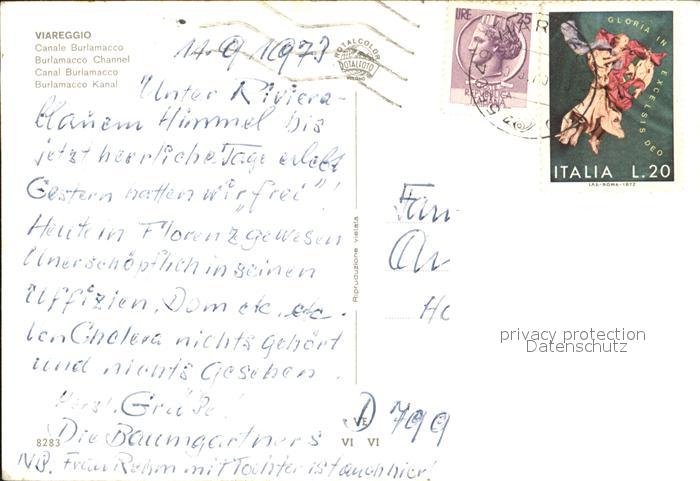 VIAREGGIO
Canale Burlamacco
Burlamacco Channel
Canal Burlamacco
Burlamacco Kanal
14.9.1973
ROTALCOLOR
ROTALFOTO
Unter Riviera-
blauem Himmel bis
jetzt herrliche Tage erlebt
Gestern hatten wir „frei"!
Heute in Florenz gewesen
Unerschöpflich in seinen
Uffizien, Dom etc. etc.
Von Cholera nichts gehört
und nichts gesehen.
Herzl. Grüße!
Die Baumgartners
NB. Frau Rehm mit Tochter ist auch hier!
8283
Riproduzione vietata
VE
VI VI
LIRE 25
ITALIANA
GLORIA IN EXCELSIS DEO
ITALIA L.20
I.P.S.-ROMA-1972
Fam
D 799
privacy protection
Datenschutz